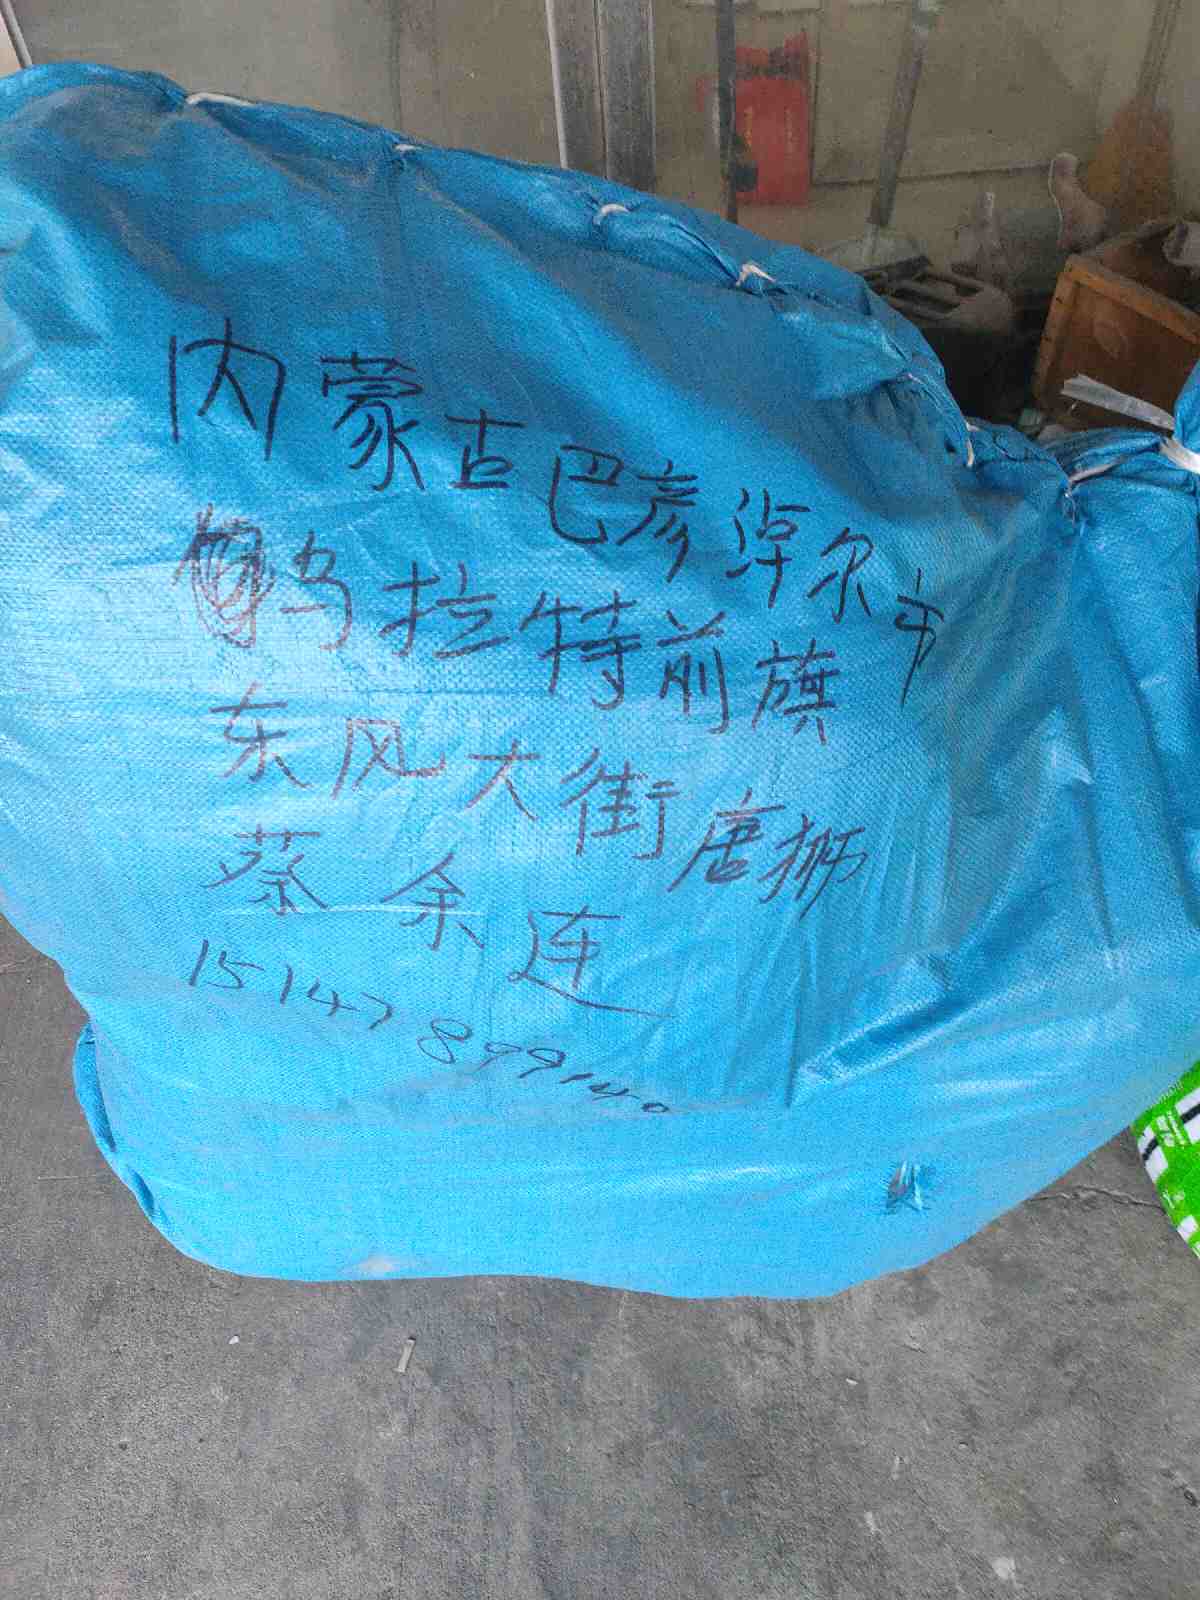 内蒙古巴彦淖尔市
乌拉特前旗
东风大街唐狮
蔡余连
15147899140